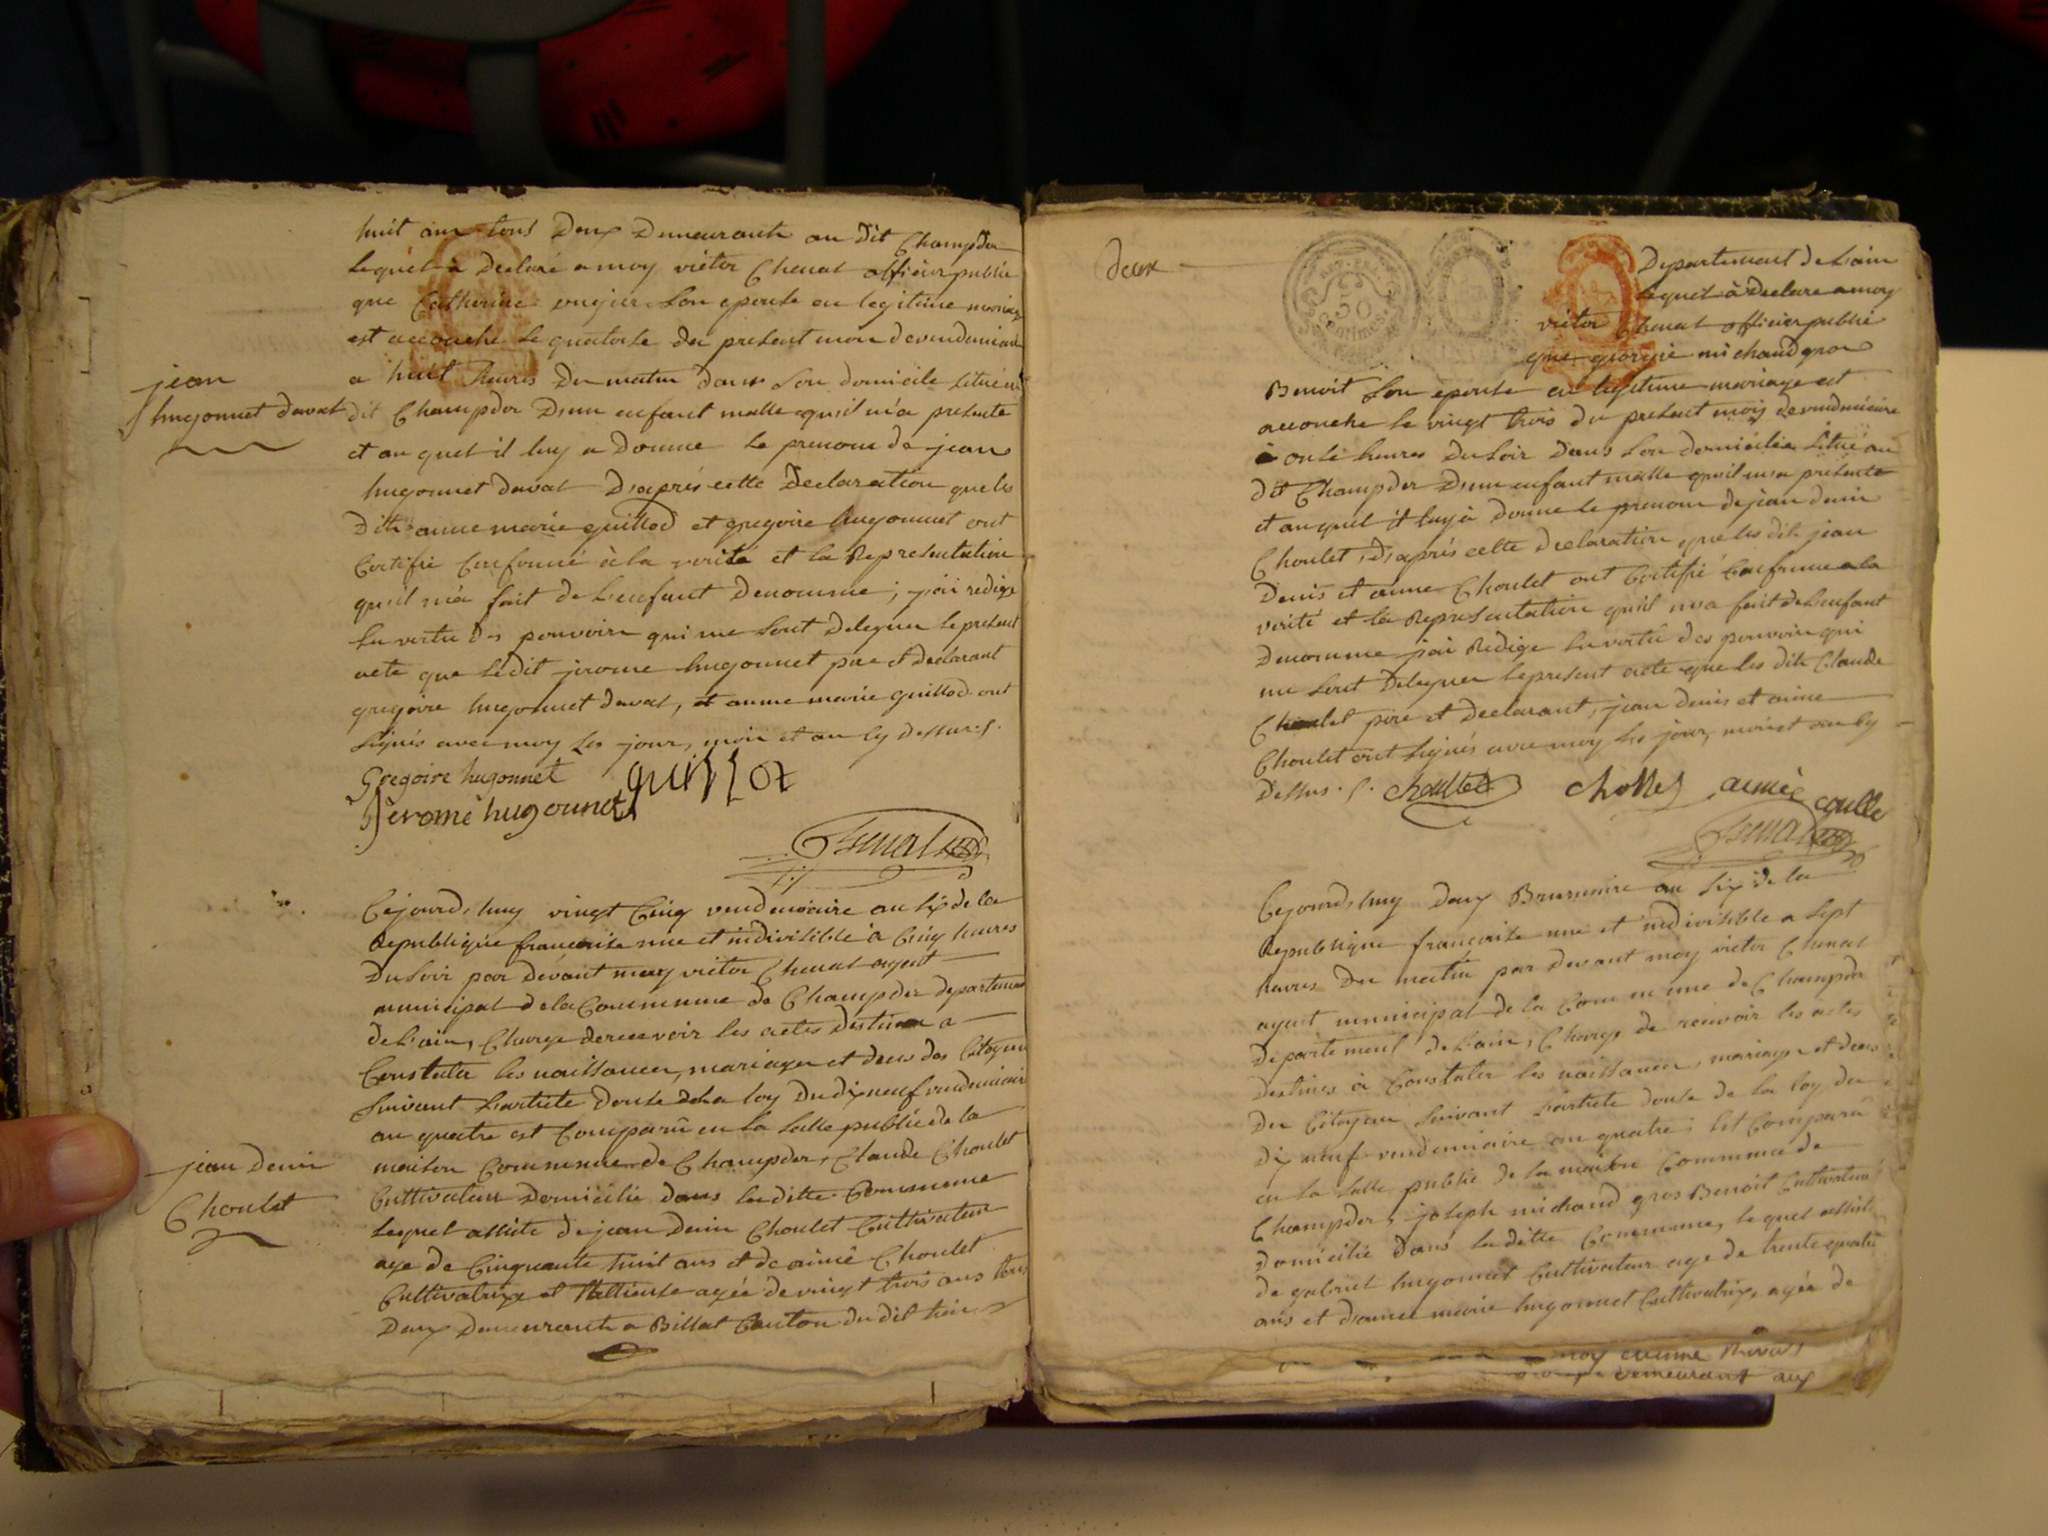 huit ans tous Deux Demeurants au Dit Champdor
Lequel à Declaré a moy victor Chenal officier public
que Catherine son epouse en legitime mariage
est accouché Le quatorse du present mois devendemiaire
a huit heures Du matin dans Son domicile Situé au
jean
hugonnet davat
dit Champdor D'un enfant malle qu'il m'a presenté
et au quel il luy a Donné Le prenom de jean
hugonnet davat D'après cette Declaration que les
Dits anne marie guillod et gregoire hugonnet ont
Certifié Conforme à la verité et la Representation
qu'il m'a fait de L'enfant Denommé, j'ai redigé
En vertu Des pouvoirs qui me sont Delegués le present
acte que Ledit jerome hugonnet pere et Declarant
gregoire hugonnet davat, et anne marie guillod ont
Signés avec moy Les jour, mois et an Cy Dessus. /.
Gregoire hugonnet guillot
Jérome hugounet
Chenal
Cejourd'huy vingt Cinq vendemiaire an Six de la
Republique française une et indivisible à Cinq heures
Du Soir par devant moy victor Chenal agent
municipal de la Commune de Champdor departement
de L'ain, Chargé de recevoir les actes destinés a
Constater les naissances, mariages et deces des Citoyens
Suivant L'article douse de la loy Du dix neuf vendemiaire
an quatre est Comparu en La Salle public de la
jean Denis
Choulet
maison Commune de Champdor, Claude Choulet
Cultivateur Domicilié Dans la ditte Commune
Lequel assisté de jean Denis Choulet Cultivateur
age de Cinquante huit ans et de aimé Choulet
Cultivatrix et agée de vingt trois ans tous
Deux Demeurants a Billat Canton du dit
deux
50 Centimes
Departement de L'ain
Lequel à Declaré a moy
victor Chenal officier public
que michaud gros
Benoit Son epouse en legitime mariage est
accouché le vingt trois du present mois de vendemiaire
à onse heures Du Soir Dans Son domicilie Situé au
dit Champdor D'un enfant malle qu'il m'a presenté
et au quel il luy à donné le prenom de jean denis
Choulet, D'après cette declaration que les dits jean
Denis et aimé Choulet ont Certifié Conforme a la
verité et la Representation qu'il m'a fait de L'enfant
Denommé j'ai Redigé En vertu des pouvoirs qui
me sont Delegués le present acte que les dits Claude
Choulet pere et Declarant, jean denis et aimé
Choulet ont Signés avec moy Les jour, mois et an Cy
Dessus. /. aimée
Chenal
Cejourd'huy Deux Brumaire an Six de la
Republique française une et indivisible a Sept
heures Du matin par devant moy victor Chenal
agent municipal de la Commune de Champdor
Departement de L'ain, Chargé de recevoir les actes
destinés à Constater les naissances, mariages et deces
Des Citoyens Suivant L'article douse de la loy du
Dix neuf vendemiaire an quatre, Est Comparu
en La Salle public de la maison Commune de
Champdor, joseph michaud gros Benoit Cultivateur
domicilié dans la ditte Commune, lequel assisté
de gabriel hugonnet Cultivateur age de trente quatre
ans et d'anne marie hugonnet Cultivatrix, agée de
demeurant aux